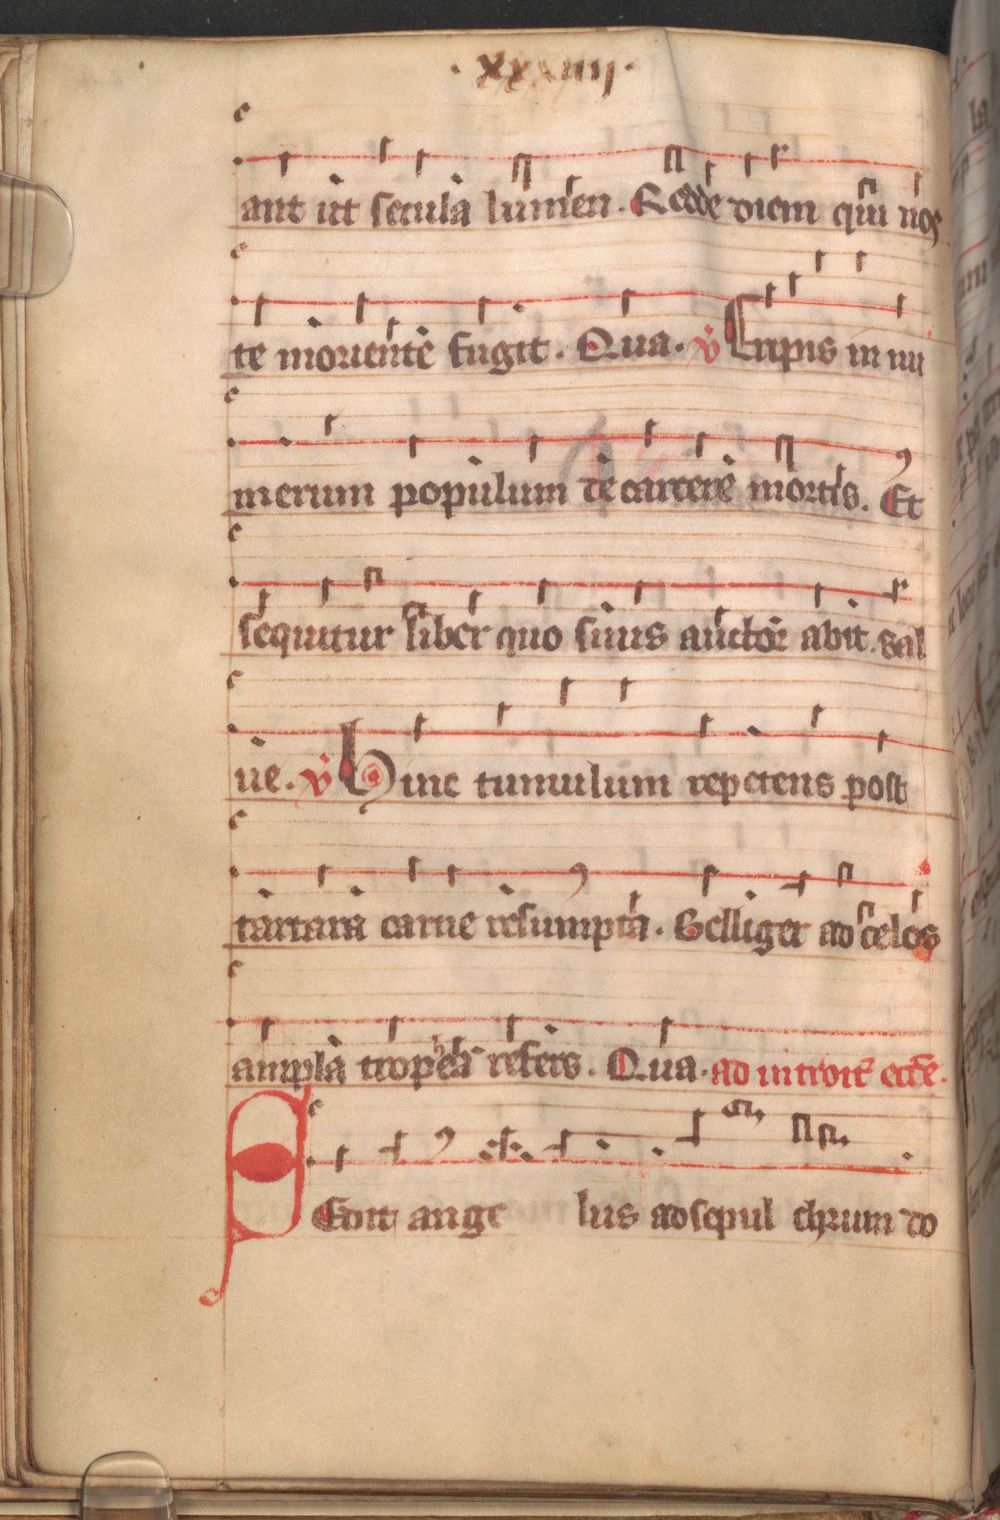 ·xxxiiij·
ant ut secula lumen. Redde diem qui nos
te moriente fugit. Qua. v̄ Eripis in nu
merum populum de carcere mortis. Et
sequitur liber quo suus auctor abit. sal
ue. v̄ Hinc tumulum repetens post
tartara carne resumpta. Belliger ad celos
ampla trophea refers. Qua. ad introit̄ ecc̄e.
Sedit ange lus ad sepul chrum do